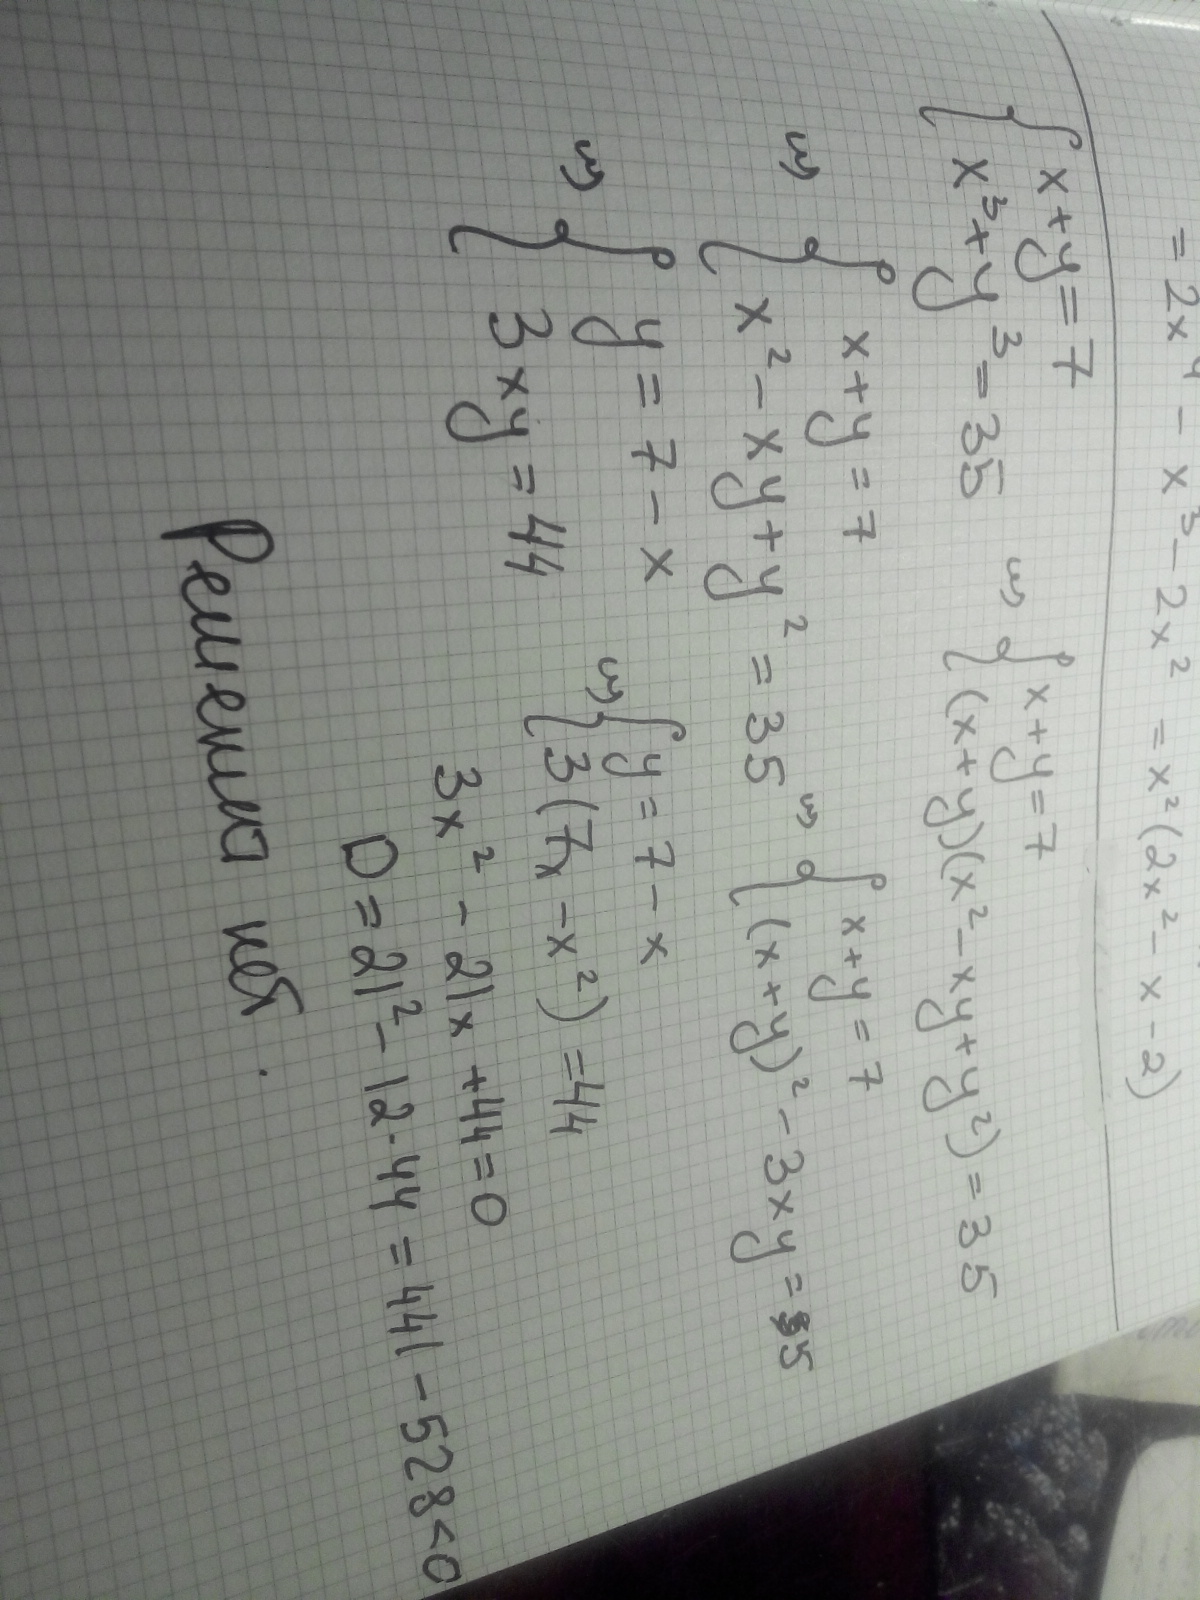 = 2x⁴ - x³ - 2x² = x²(2x² - x - 2)
{ x + y = 7
x³ + y³ = 35
⇔ { x + y = 7
(x + y)(x² - xy + y²) = 35
⇔ { x + y = 7
x² - xy + y² = 35
⇔ { x + y = 7
(x + y)² - 3xy = 5
⇔ { y = 7 - x
3xy = 44
⇔ { y = 7 - x
3(7x - x²) = 44
3x² - 21x + 44 = 0
D = 21² - 12·44 = 441 - 528 < 0
Решений нет.